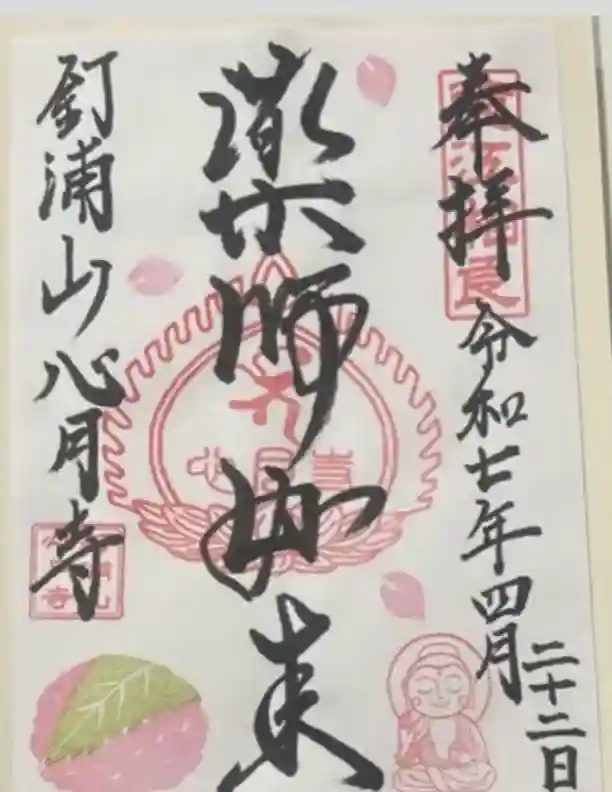 奉拝
令和七年四月
二十二日
薬師如来
釘浦山心月寺